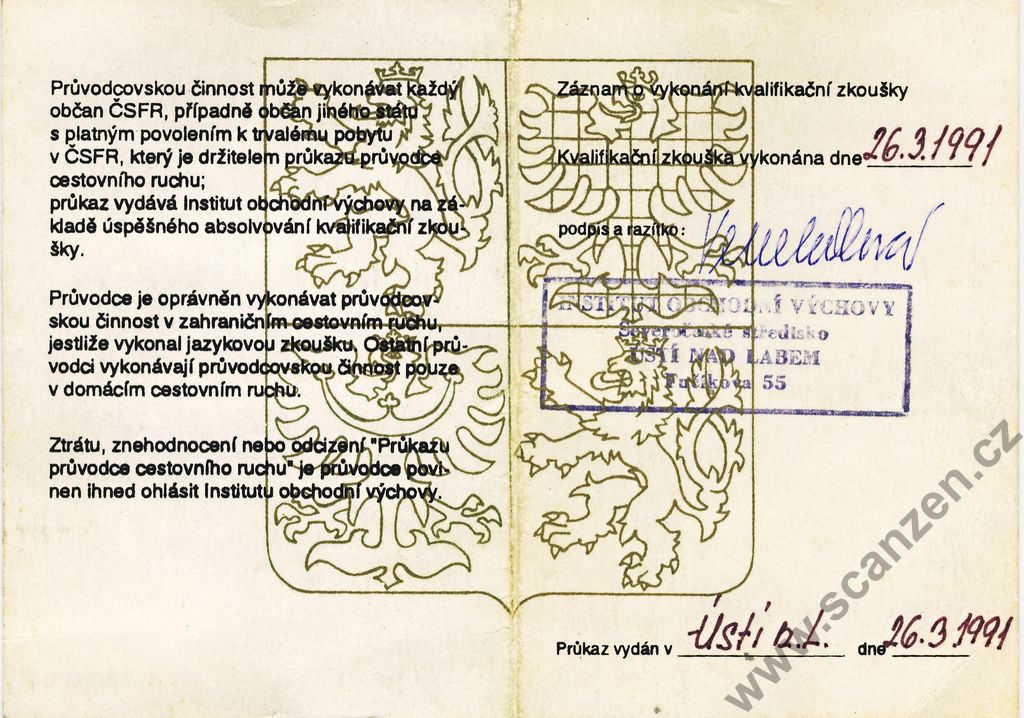 Průvodcovskou činnost může vykonávat každý
občan ČSFR, případně občan jiného státu
s platným povolením k trvalému pobytu
v ČSFR, který je držitelem průkazu průvodce
cestovního ruchu;
průkaz vydává Institut obchodní výchovy na zá-
kladě úspěšného absolvování kvalifikační zkou-
šky.
Průvodce je oprávněn vykonávat průvodcov-
skou činnost v zahraničním cestovním ruchu,
jestliže vykonal jazykovou zkoušku. Ostatní prů-
vodci vykonávají průvodcovskou činnost pouze
v domácím cestovním ruchu.
Ztrátu, znehodnocení nebo odcizení "Průkazu
průvodce cestovního ruchu" je průvodce povi-
nen ihned ohlásit Institutu obchodní výchovy.
Záznam o vykonání kvalifikační zkoušky
Kvalifikační zkouška vykonána dne 26.3.1991
podpis a razítko:
INSTITUT OBCHODNÍ VÝCHOVY
Severočeské středisko
ÚSTÍ NAD LABEM
Fučíkova 55
Průkaz vydán v Ústí n.L. dne 26.3.1991
www.scanzen.cz